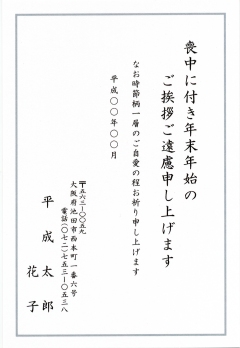 喪中に付き年末年始の
ご挨拶ご遠慮申し上げます
なお時節柄一層のご自愛の程お祈り申し上げます
平成○○年○○月
〒五六三-〇〇五九
大阪府池田市西本町一番六号
電話(〇七二)七五三-〇五三八
平成太郎
花子